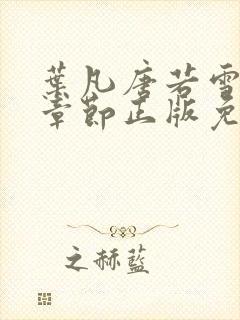 葉凡唐若雪
章節正版免
之赫藍